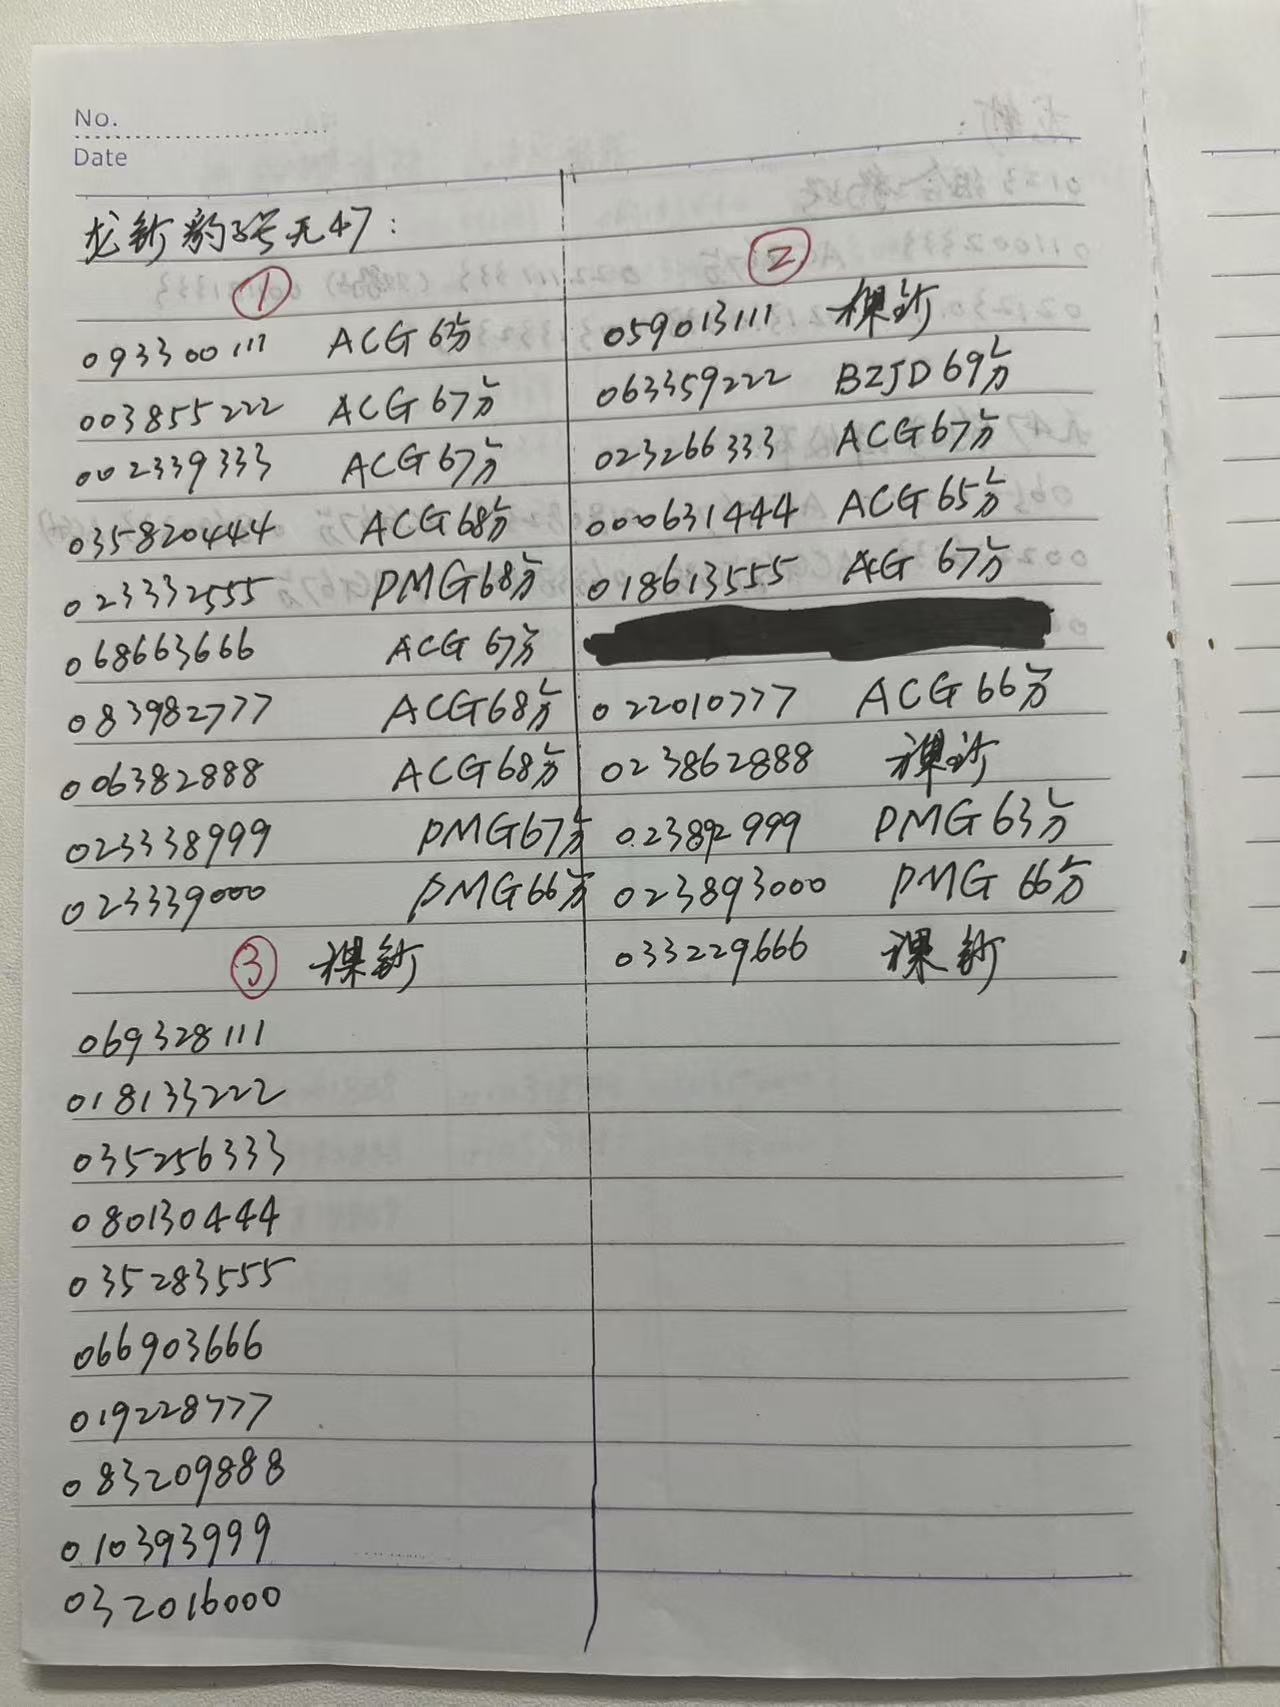 No.
Date
龙钞豹子号无47：
①
093300111 ACG 6分
003855222 ACG 67分
002339333 ACG 67分
035820444 ACG 68分
023332555 PMG 68分
068663666 ACG 67分
083982777 ACG 68分
006382888 ACG 68分
023338999 PMG 67分
023339000 PMG 66分
②
059013111 裸钞
063359222 BZJD 69分
023266333 ACG 67分
000631444 ACG 65分
018613555 ACG 67分
022010777 ACG 66分
023862888 裸钞
023892999 PMG 63分
023893000 PMG 66分
033229666 裸钞
③ 裸钞
069328111
018133222
035256333
080130444
035283555
066903666
019228777
083209888
010393999
032016000